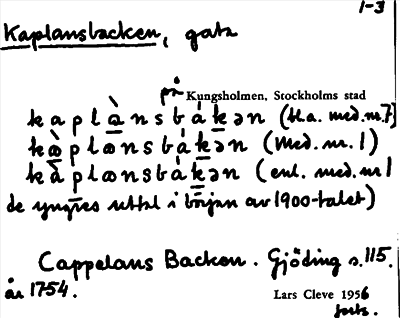 1-3
Kaplansbacken, gata
på Kungsholmen, Stockholms stad
kaplànsbákən (bl.a. med.nr.7)
kàplansbákən (Med. nr. 1)
kàplansbákən (enl. med.nr 1
de yngres uttal i början av 1900-talet)
Cappelans Backen. Gjöding s. 115.
år 1754.
Lars Cleve 1956
forts.